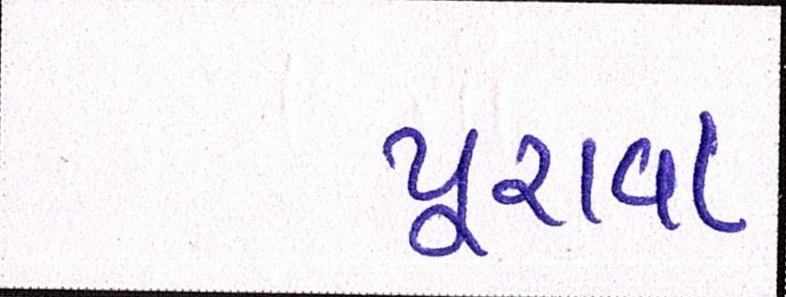 પૂરાવા